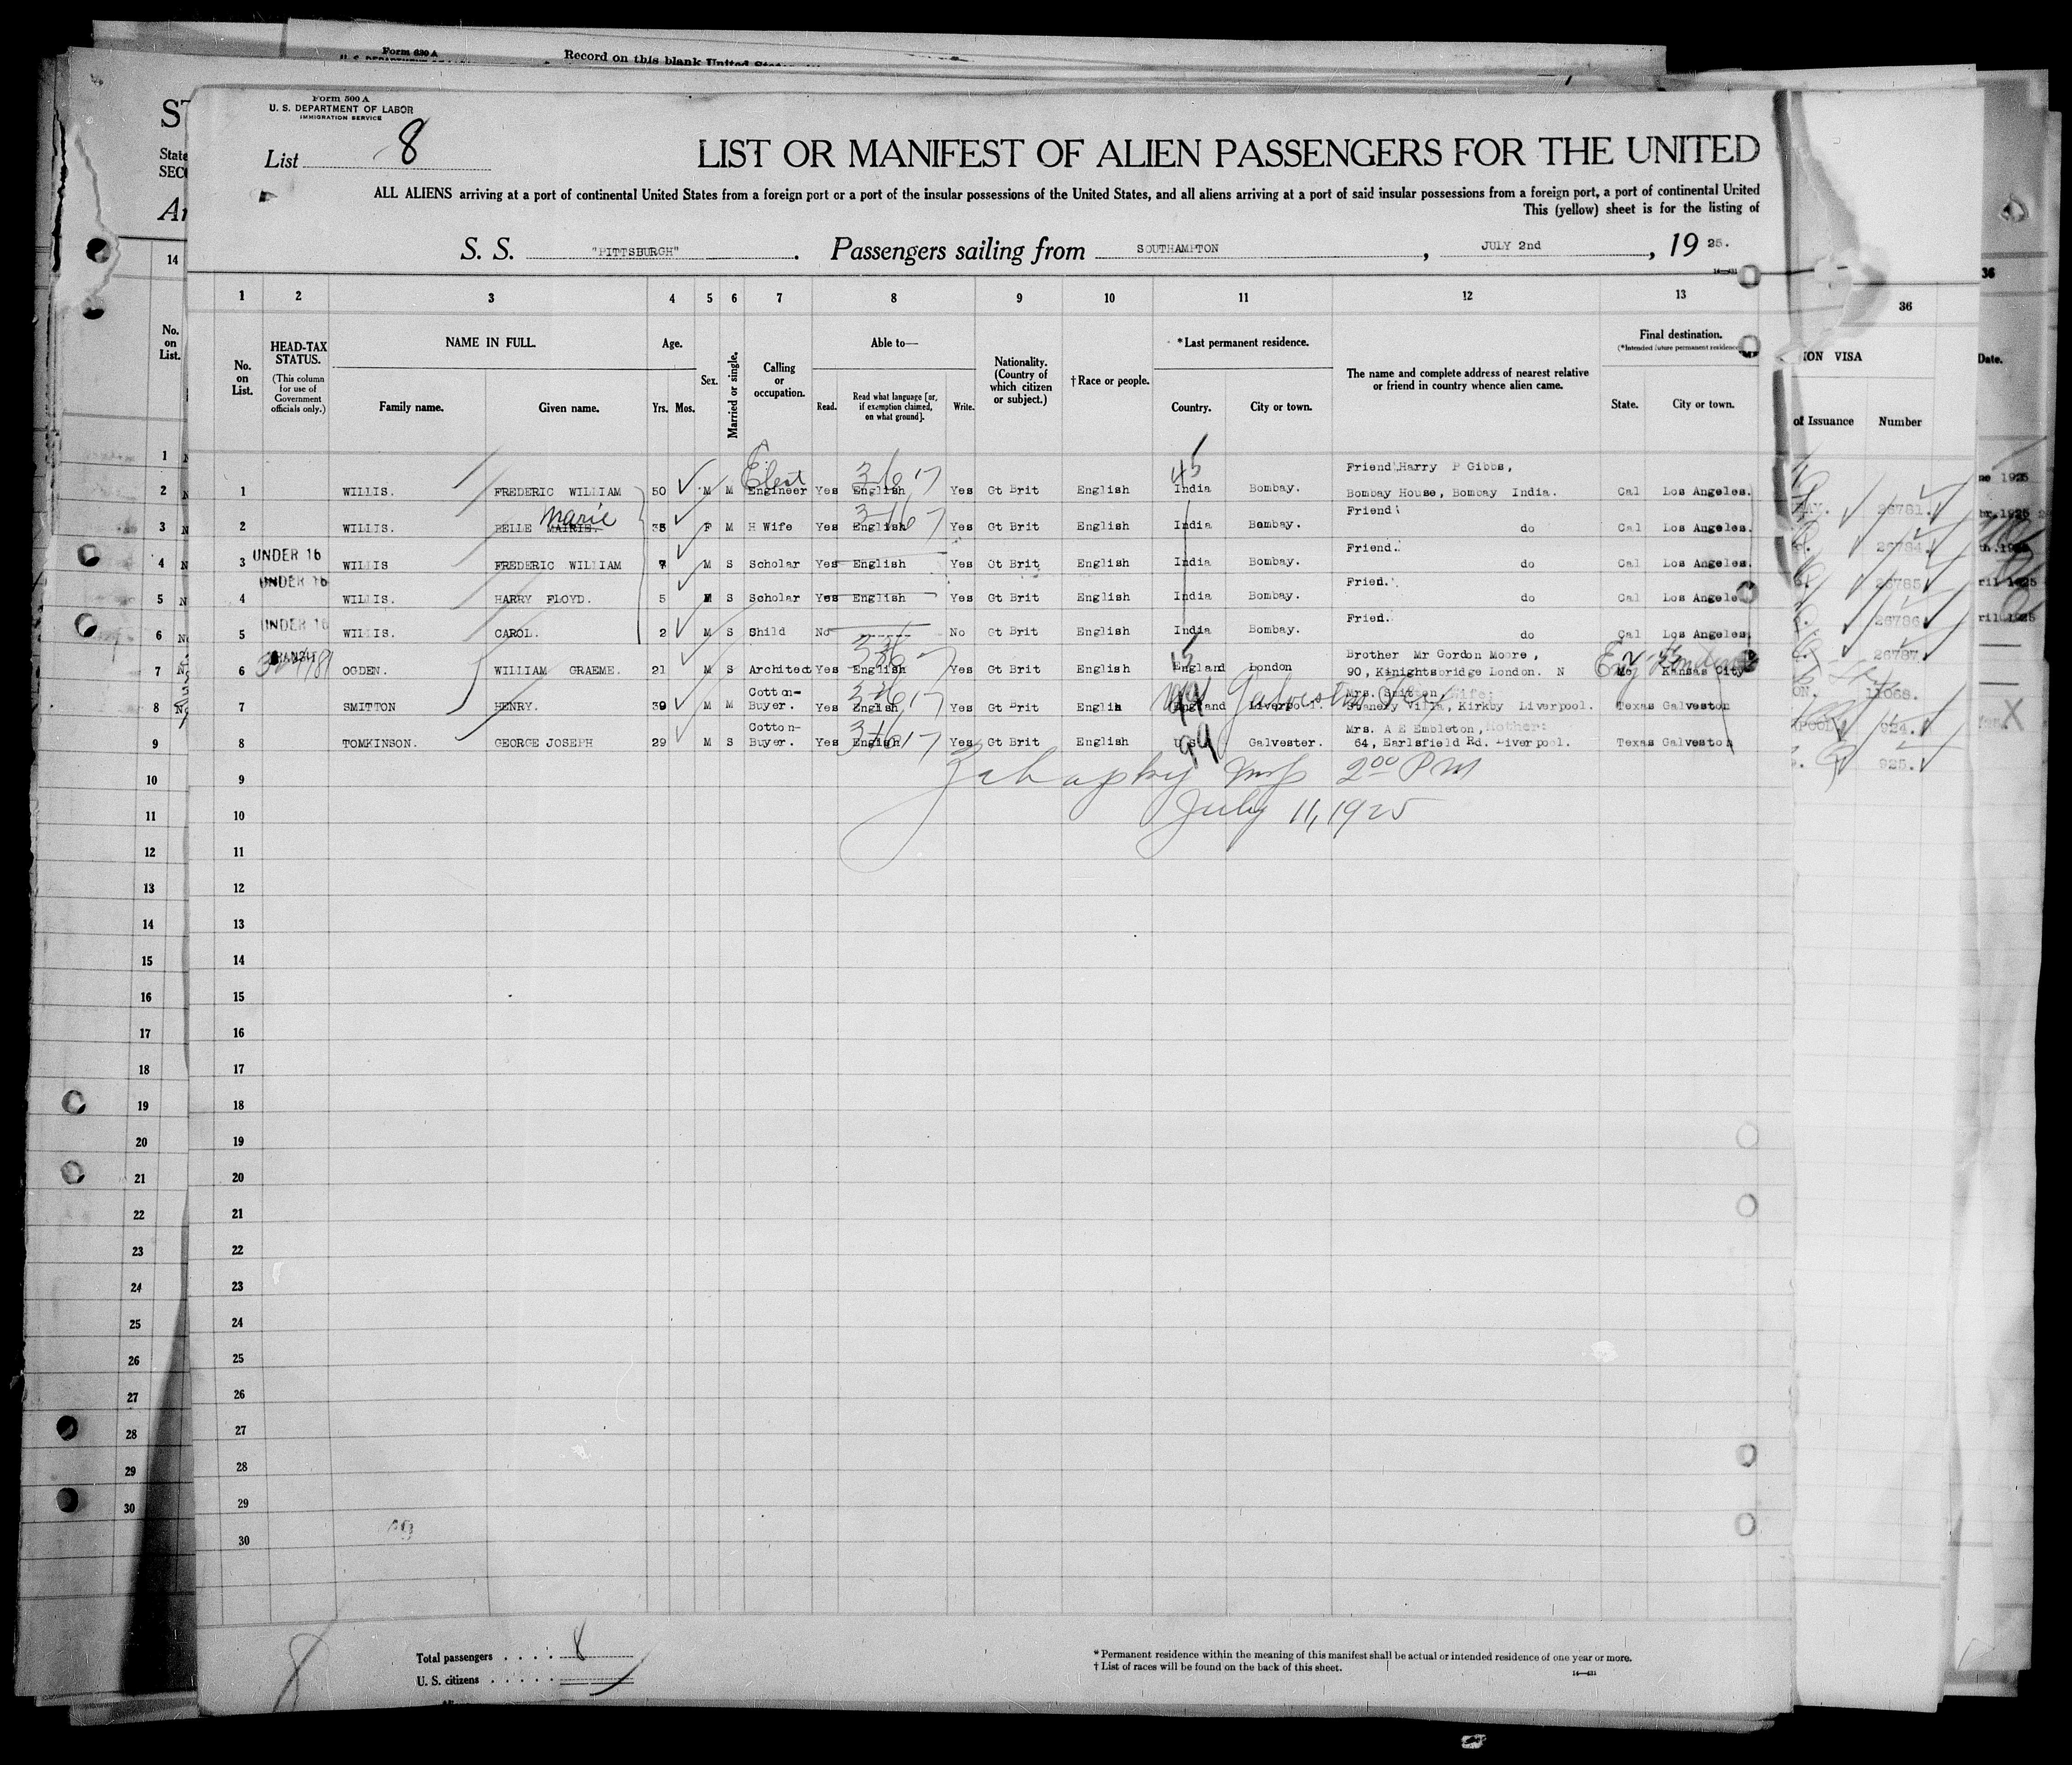 Form 630 A
Record on this blank United
Form 500 A
U. S. DEPARTMENT OF LABOR
IMMIGRATION SERVICE
List 8
LIST OR MANIFEST OF ALIEN PASSENGERS FOR THE UNITED
ALL ALIENS arriving at a port of continental United States from a foreign port or a port of the insular possessions of the United States, and all aliens arriving at a port of said insular possessions from a foreign port, a port of continental United
This (yellow) sheet is for the listing of
S. S. "PITTSBURGH". Passengers sailing from SOUTHAMPTON, JULY 2nd, 19 25.
1 2 3 4 5 6 7 8 9 10 11 12 13
No. on List.
HEAD-TAX STATUS.
(This column for use of Government officials only.)
NAME IN FULL.
Family name. Given name.
Age.
Yrs. Mos.
Sex.
Married or single.
Calling or occupation.
Able to—
Read. Read what language [or, if exemption claimed, on what ground]. Write.
Nationality. (Country of which citizen or subject.)
†Race or people.
*Last permanent residence.
Country. City or town.
The name and complete address of nearest relative or friend in country whence alien came.
Final destination.
(*Intended future permanent residence)
State. City or town.
Elect
Friend Harry P Gibbs,
1 WILLIS. FREDERIC WILLIAM 50 M M Engineer Yes English Yes Gt Brit English India Bombay. Bombay House, Bombay India. Cal Los Angeles.
Marie
Friend
2 WILLIS. BELLE MAIRIE. 35 F M H Wife Yes English Yes Gt Brit English India Bombay. do Cal Los Angeles.
UNDER 16
Friend.
3 WILLIS FREDERIC WILLIAM 7 M S Scholar Yes English Yes Gt Brit English India Bombay. do Cal Los Angeles.
UNDER 16
Fried.
4 WILLIS. HARRY FLOYD. 5 M S Scholar Yes English Yes Gt Brit English India Bombay. do Cal Los Angele
UNDER 16
Fried.
5 WILLIS. CAROL. 2 M S Shild No No Gt Brit English India Bombay. do Cal Los Angeles.
TRANSIT
Brother Mr Gordon Moore,
6 OGDEN. WILLIAM GRAEME. 21 M S Architect Yes English Yes Gt Brit English England London 90, Kinightsbridge London. N Mo Kansas City
Cotton- Galveston Mrs. Smitton, Wife:
7 SMITTON HENRY. 39 M M Buyer. Yes English Yes Gt Brit Englih England Liverpool. Villa, Kirkby Liverpool. Texas Galveston
Cotton- Mrs. A E Embleton, Mother:
8 TOMKINSON. GEORGE JOSEPH 29 M S Buyer. Yes Engish Yes Gt Brit English U S Galvester. 64, Earlsfield Rd. Liverpool. Texas Galveston
9 2 00 PM
10 July 11, 1925
11
12
13
14
15
16
17
18
19
20
21
22
23
24
25
26
27
28
29
30
Total passengers . . . . 8
U. S. citizens . . . . . .
* Permanent residence within the meaning of this manifest shall be actual or intended residence of one year or more.
† List of races will be found on the back of this sheet.
14—431
14
No. on List.
1
2
3
4
5
6
7
8
9
10
11
12
13
14
15
16
17
18
19
20
21
22
23
24
25
26
27
28
29
30
36
ION VISA
of Issuance Number
26781.
26784.
26785
26786
26787
11068.
924.
925.
36
Date.
1925